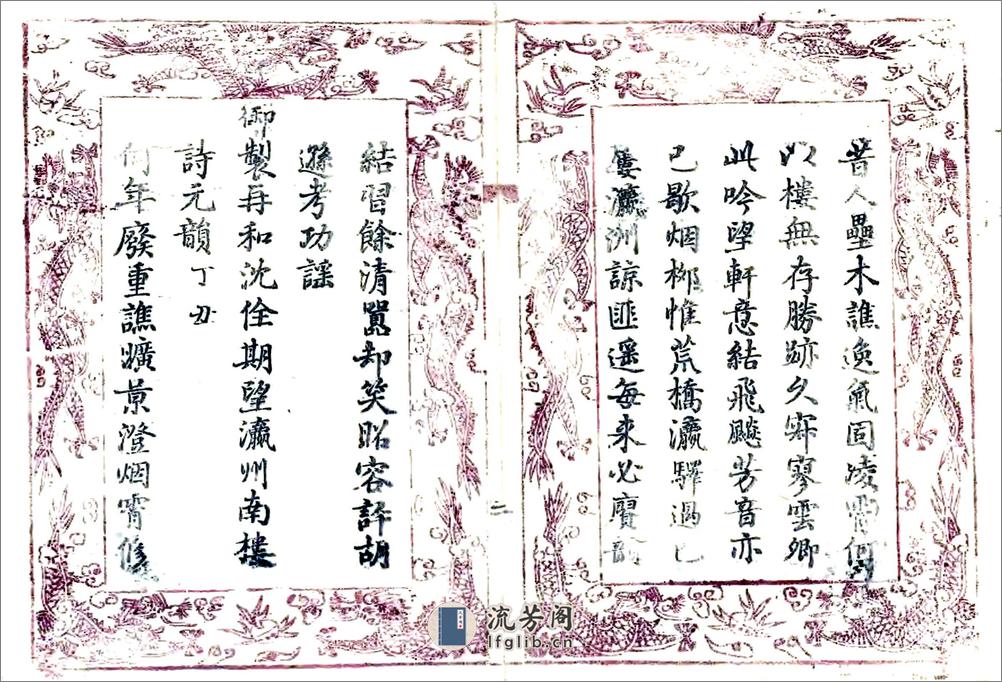 昔人壘木譙逸氣固凌霄何
以樓無存勝跡久寂寥雲卿
此吟望軒意結飛飈芳音亦
已歇烟柳惟荒橋瀛驛過已
屢瀛洲諒匪遥每来必賡韻
二
結習餘清嚣却笑昭容評胡
遜考功謡
御製再和沈佺期望瀛州南樓
詩元韻丁丑
何年廢重譙曠景澄烟霄
流芳阁
lfglib.cn